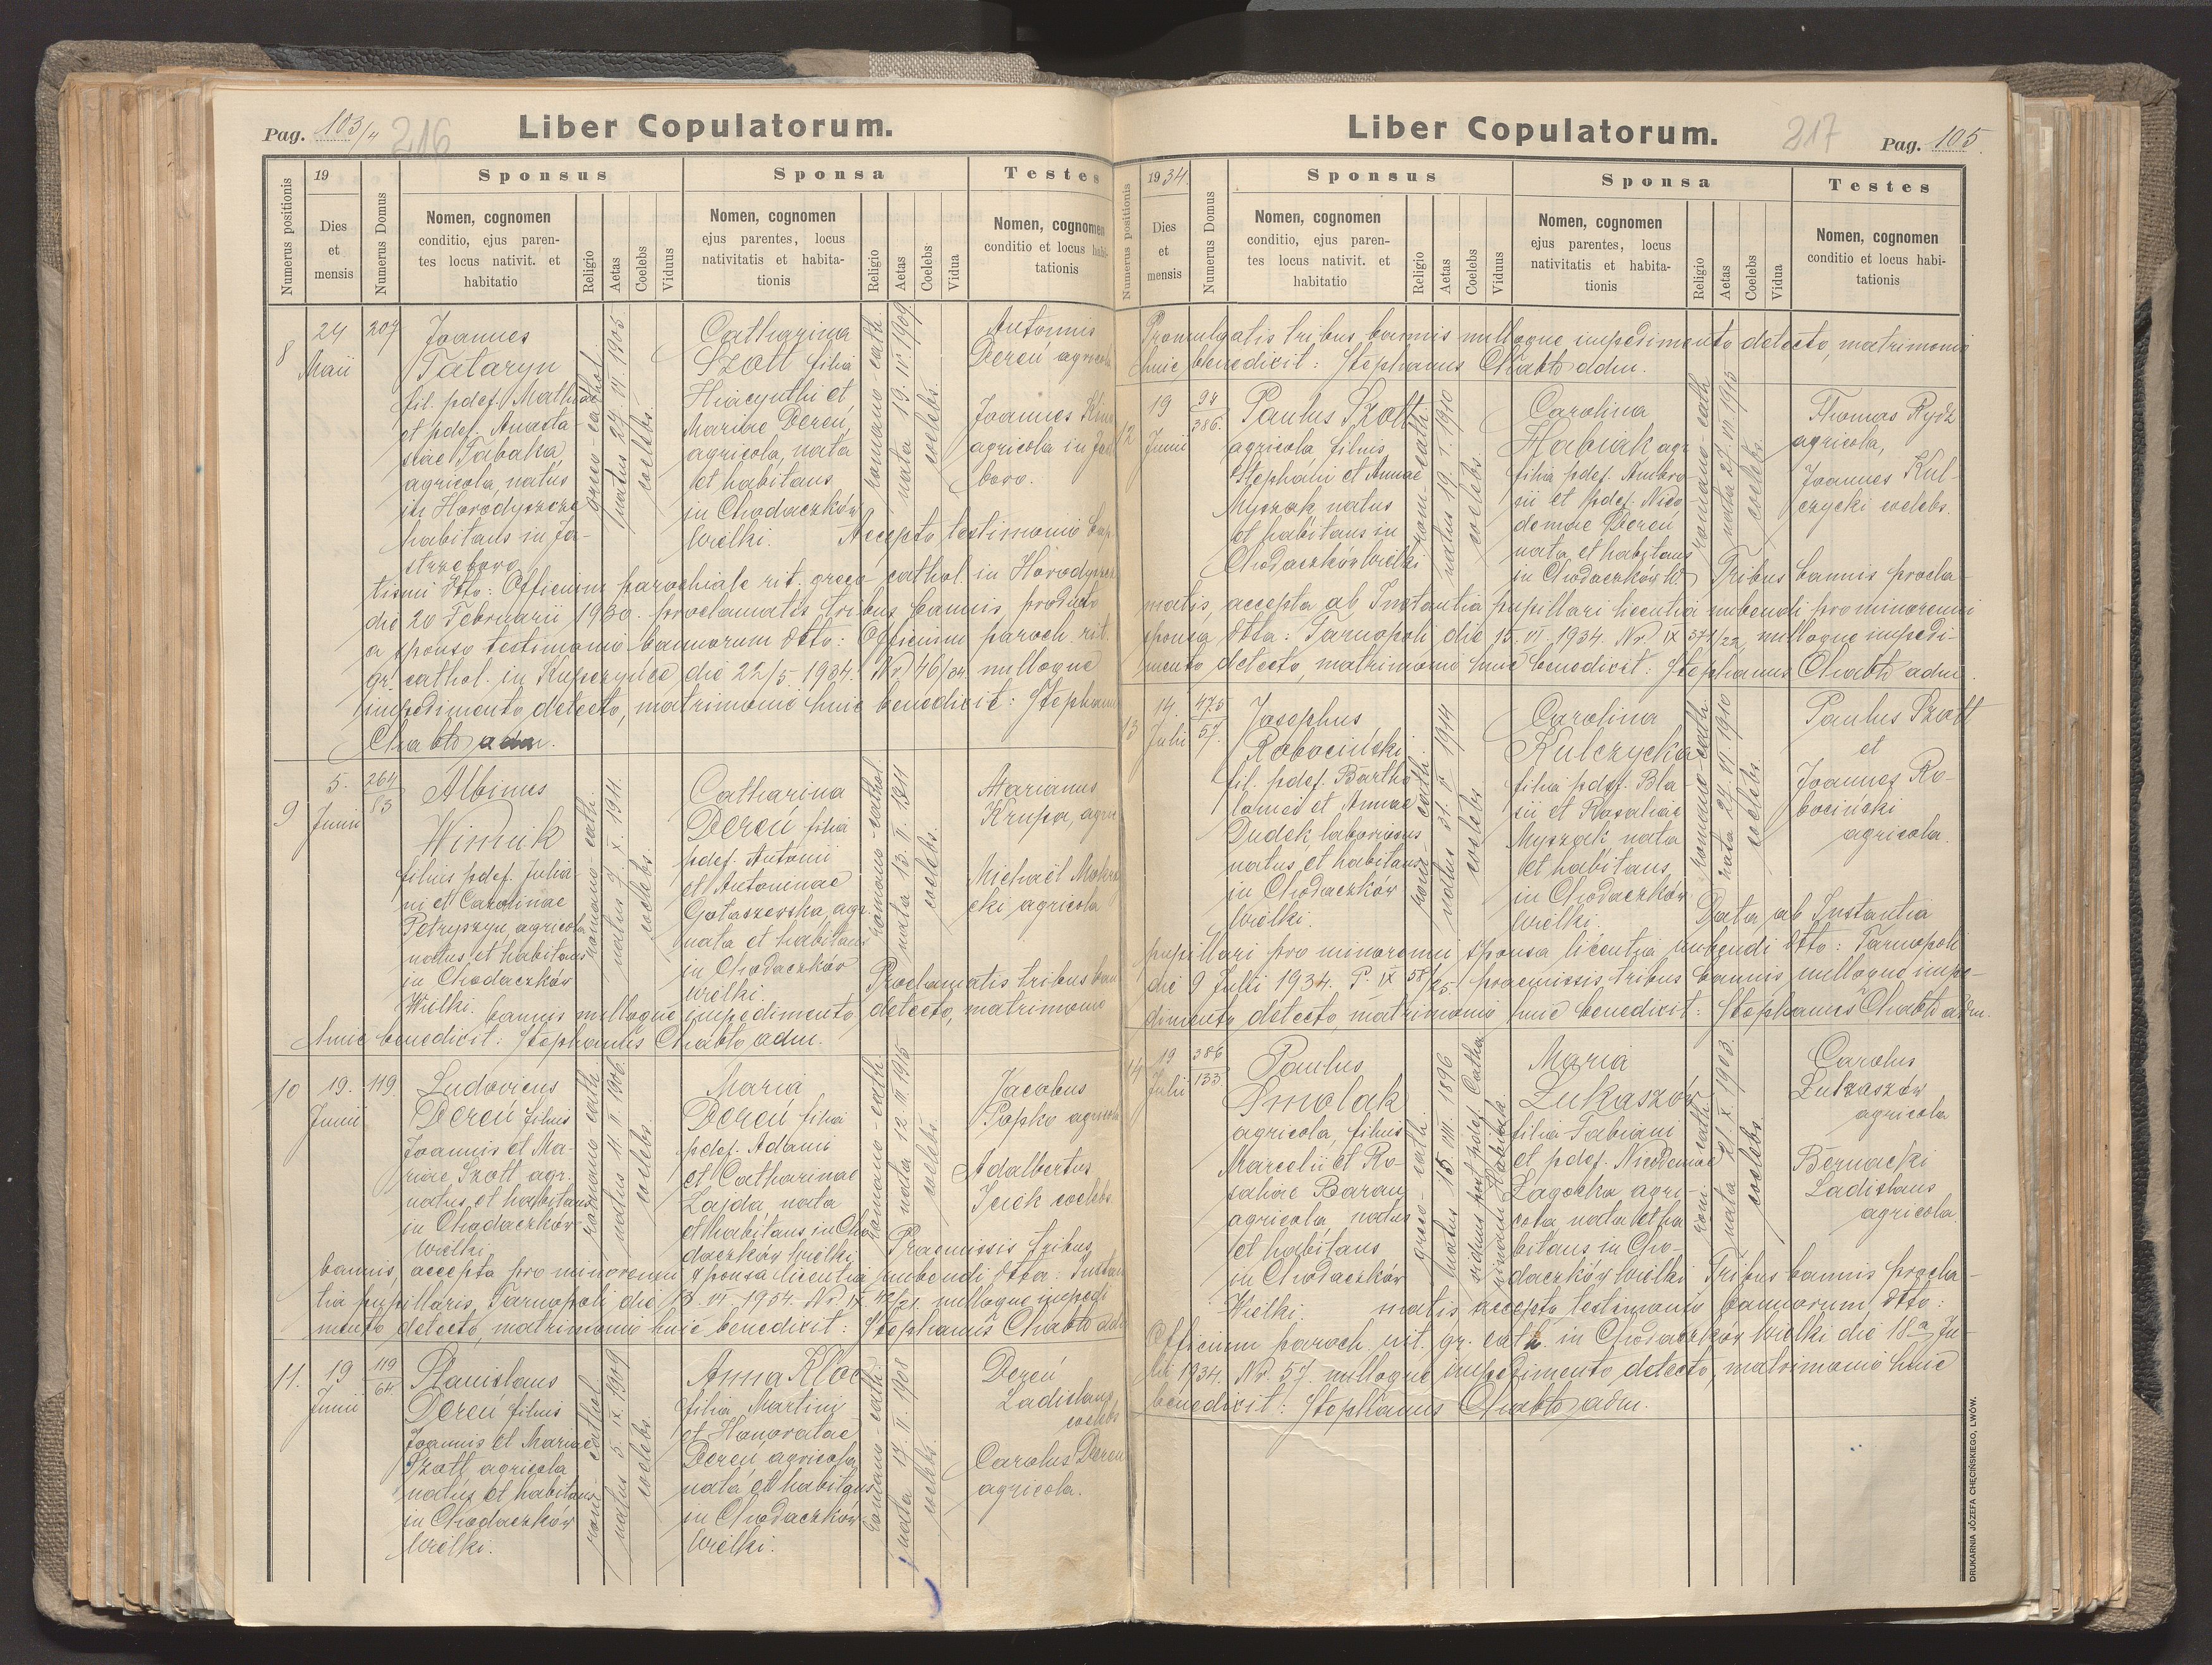 Pag. 103/4 216
Liber Copulatorum.
Numerus positionis
19
Dies
et
mensis
Numerus Domus
Sponsus
Nomen, cognomen
conditio, ejus paren-
tes locus nativit. et
habitatio
Religio
Aetas
Coelebs
Viduus
Sponsa
Nomen, cognomen
ejus parentes, locus
nativitatis et habita-
tionis
Religio
Aetas
Coelebs
Vidua
Testes
Nomen, cognomen
conditio et locus habi-
tationis
8
24
Maii
207
Joannes
Tataryn
fil. pdef. Mathiae
et pdef. Anasta-
siae Tabaka,
agricola, natus
in Horodyszcze
habitans in Ja-
strzębowo
greco-cathol.
natus 24. VI. 1905
coelebs.
Catharina
Szott filia
Hiacynthi et
Mariae Dereń,
agricola, nata
et habitans
in Chodaczków
Wielki.
romano-cath.
nata 19. IV. 1909
coelebs.
Antonius
Dereń agricola
Joannes
agricola in
bowo.
Accepto testimonio Bap-
tismi dtto: Officium parochiale rit. greco-cathol. in Horodyszcze
die 20 Februarii 1930. proclamatis tribus bannis, producto
a sponso testimonio bannorum dtto: Officium paroch. rit.
gr. cathol. in Kupczyńce die 22/5. 1934. Nr. 46/34 nulloque
impedimento detecto, matrimonio huic benedixit: Stephanus
Chabło adm.
9
5.
Junii
264
83
Albinus
Wimuk
filius pdef. Julia-
ni et Carolinae
Petryszyn, agricola
natus et habitans
in Chodaczków
Wielki.
romano-cath.
natus 7. X. 1911.
coelebs.
Catharina
Dereń filia
pdef. Antonii
et Antoninae
Gotaszewska, agr.
nata et habitans
in Chodaczków
Wielki.
romano-cathol.
nata 13. II. 1911
coelebs.
Marianus
Krupa, agri
Michaël
cki agricola
Proclamatis tribus
bannis nulloque impedimento detecto, matrimonio
huic benedixit: Stephanus Chabło adm.
10
19.
Junii
119.
Ludovicus
Dereń filius
Joannis et Ma-
riae Szott agr.
natus et habitans
in Chodaczków
Wielki.
romano-cath.
natus 11. II. 1906.
coelebs.
Maria
Dereń filia
pdef. Adami
et Catharinae
Łajda, nata
et habitans in Cho-
daczków Wielki
romano-cath.
nata 12. III. 1915
coelebs.
Jacobus
Papko agricola
Adalbertus
coelebs.
Praemissis tribus
bannis, accepta pro minorenni sponsa licentia nubendi dtta: Instan-
tia pupillaris, Tarnopoli die 15. VI 1934. Nr. IX 42/21. nulloque impedi
mento detecto, matrimonio huic benedixit: Stephanus Chabło adm
11.
19
Junii
119
64
Stanislaus
Dereń filius
Joannis et Mariae
Szott, agricola
natus et habitans
in Chodaczków
Wielki.
rom.-cathol.
natus 5. IX. 1909
coelebs.
Anna Kłoc
filia Martini
et Honoratae
Dereń, agricola,
nata et habitans
in Chodaczków
Wielki.
romano-cath.
nata 17. II. 1908
coelebs.
Dereń
Ladislaus
coelebs
Carolus Dereń
agricola.
Liber Copulatorum.
217
Pag. 105.
Numerus positionis
1934.
Dies
et
mensis
Numerus Domus
Sponsus
Nomen, cognomen
conditio, ejus paren-
tes locus nativit. et
habitatio
Religio
Aetas
Coelebs
Viduus
Sponsa
Nomen, cognomen
ejus parentes, locus
nativitatis et habita-
tionis
Religio
Aetas
Coelebs
Vidua
Testes
Nomen, cognomen
conditio et locus habi-
tationis
Promulgatis tribus bannis nulloque impedimento detecto, matrimonio
huic benedixit: Stephanus Chabło adm.
12
19
Junii
94
386.
Paulus Szott
agricola, filius
Stephani et Annae
Myszak, natus
et habitans in
Chodaczków Wielki
rom.-cath.
natus 19. I. 1910
coelebs.
Carolina
Habiak agr.
filia pdef. Ambro-
sii et pdef. Nico-
demae Dereń
nata et habitans
in Chodaczków W.
romano-cath.
nata 27. VI. 1915
coelebs.
Thomas Rydz
agricola,
Joannes Kul-
czycki coelebs.
Tribus bannis procla-
matis, accepta ab Instantia pupillari licentia nubendi pro minorenni
sponsa dtta: Tarnopoli die 15. VI. 1934. Nr. IX 371/22, nulloque impedi-
mento detecto, matrimonio huic benedixit: Stephanus Chabło adm.
13
14.
Julii
475
57.
Josephus
Robociński
fil. pdef. Bartho-
lomei et Annae
Dudek, laboriosus
natus et habitans
in Chodaczków
Wielki.
rom.-cath.
natus 31. V. 1914
coelebs
Carolina
Kulczycka
filia pdef. Bla-
sii et Rosaliae
Myszak nata
et habitans
in Chodaczków
Wielki.
romano-cath.
nata 24. VI. 1910
coelebs.
Paulus Szott
et
Joannes Ro-
bociński
agricola.
Data, ab Instantia
pupillari pro minorenni sponsa licentia nubendi dtto: Tarnopoli
die 9 Julii 1934. P. IX 58/25. praemissis tribus bannis, nulloque impe-
dimento detecto, matrimonio huic benedixit: Stephanus Chabło adm.
14
19
Julii
386
133
Paulus
Smolak
agricola, filius
Marcelii et Ro-
saliae Baran
agricola, natus
et habitans
in Chodaczków
Wielki.
greco-cath.
natus 15. VIII. 1896
viduus post pdef. Catha
rinam Habiak
Maria
Łukaszów
filia Fabiani
et pdef. Nicodemae
Łagocka, agri-
cola, nata et ha-
bitans in Cho-
daczków Wielki
rom.-cath.
nata 21. X. 1903.
coelebs.
Carolus
Łukaszów
agricola
Bernacki
Ladislaus
agricola.
Tribus bannis procla-
matis accepto testimonio bannorum dtto:
Officium paroch. rit. gr. cath. in Chodaczków Wielki die 18ª Ju-
lii 1934. Nr. 57. nulloque impedimento detecto, matrimonio huic
benedixit: Stephanus Chabło adm.
DRUKARNIA JÓZEFA CHĘCIŃSKIEGO, LWÓW.